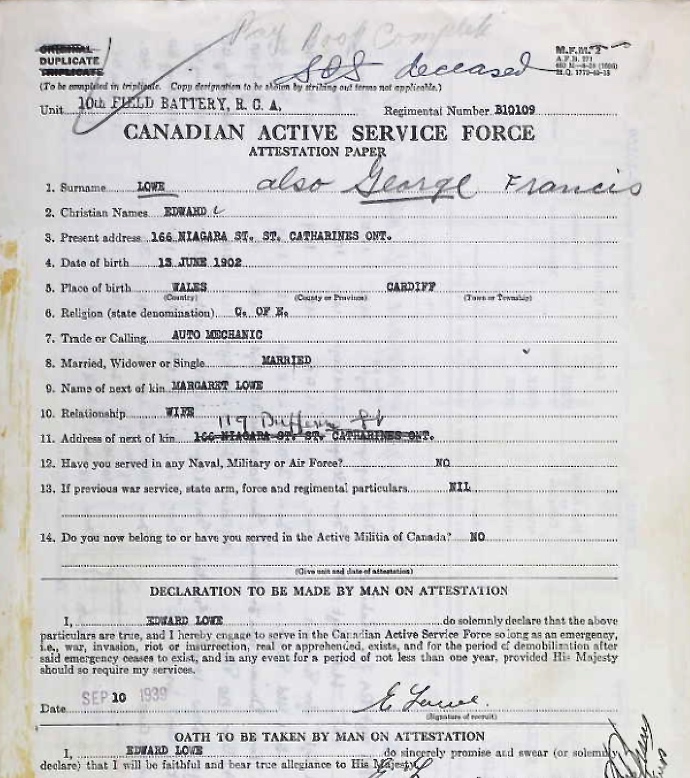 Pay Book Complete
ORIGINAL
DUPLICATE
TRIPLICATE
SOS deceased
M.F.M. 2
(To be completed in triplicate. Copy designation to be shown by striking out terms not applicable.)
Unit 10th FIELD BATTERY, R. C. A. Regimental Number B10109
CANADIAN ACTIVE SERVICE FORCE
ATTESTATION PAPER
1. Surname LOWE also George Francis
2. Christian Names EDWARD
3. Present address 166 NIAGARA ST. ST. CATHARINES ONT.
4. Date of birth 13 JUNE 1902
5. Place of birth WALES CARDIFF
(Country) (County or Province) (Town or Township)
6. Religion (state denomination) C. OF E.
7. Trade or Calling AUTO MECHANIC
8. Married, Widower or Single MARRIED
9. Name of next of kin MARGARET LOWE
10. Relationship WIFE
119 Dufferin St
11. Address of next of kin 166 NIAGARA ST. ST. CATHARINES ONT.
12. Have you served in any Naval, Military or Air Force? NO
13. If previous war service, state arm, force and regimental particulars NIL
14. Do you now belong to or have you served in the Active Militia of Canada? NO
(Give unit and date of attestation)
DECLARATION TO BE MADE BY MAN ON ATTESTATION
I, EDWARD LOWE do solemnly declare that the above
particulars are true, and I hereby engage to serve in the Canadian Active Service Force so long as an emergency,
i.e., war, invasion, riot or insurrection, real or apprehended, exists, and for the period of demobilization after
said emergency ceases to exist, and in any event for a period of not less than one year, provided His Majesty
should so require my services.
Date SEP 10 1939 E Lowe
(Signature of recruit)
OATH TO BE TAKEN BY MAN ON ATTESTATION
I, EDWARD LOWE do sincerely promise and swear (or solemnly
declare) that I will be faithful and bear true allegiance to His Majesty.